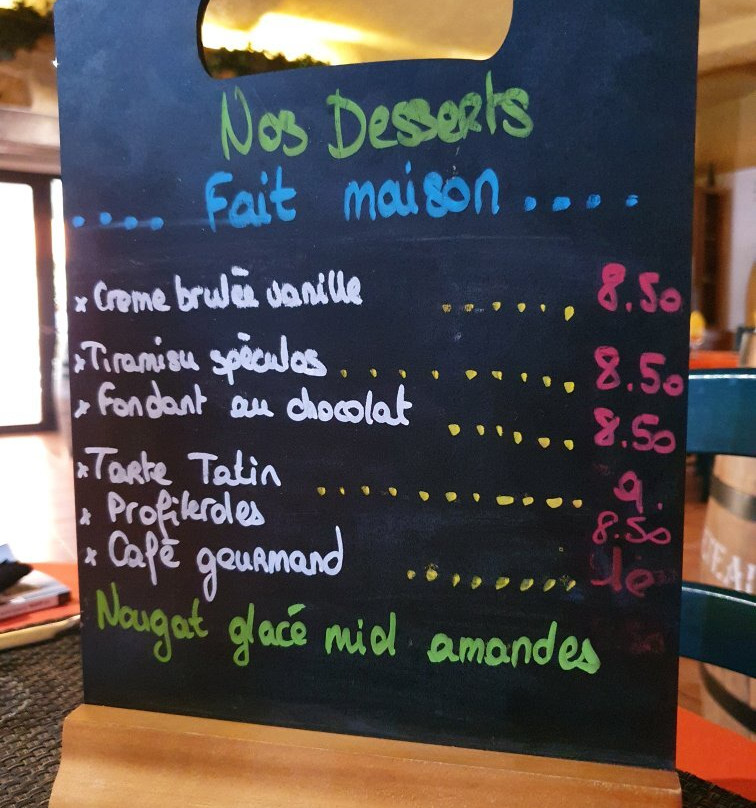 Nos Desserts
.... Fait maison ....
x Creme brulée vanille ...... 8.50
x Tiramisu spéculos .......... 8.50
x Fondant au chocolat ...... 8.50
x Tarte Tatin ............ 9.
x Profiteroles 8.50
x Café gourmand ........ 10
Nougat glacé miel amandes